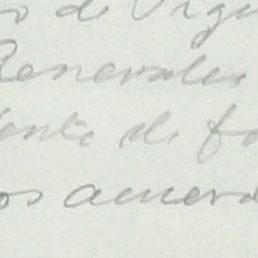 o de Vigi
Generales
ente de fo
os acuerd